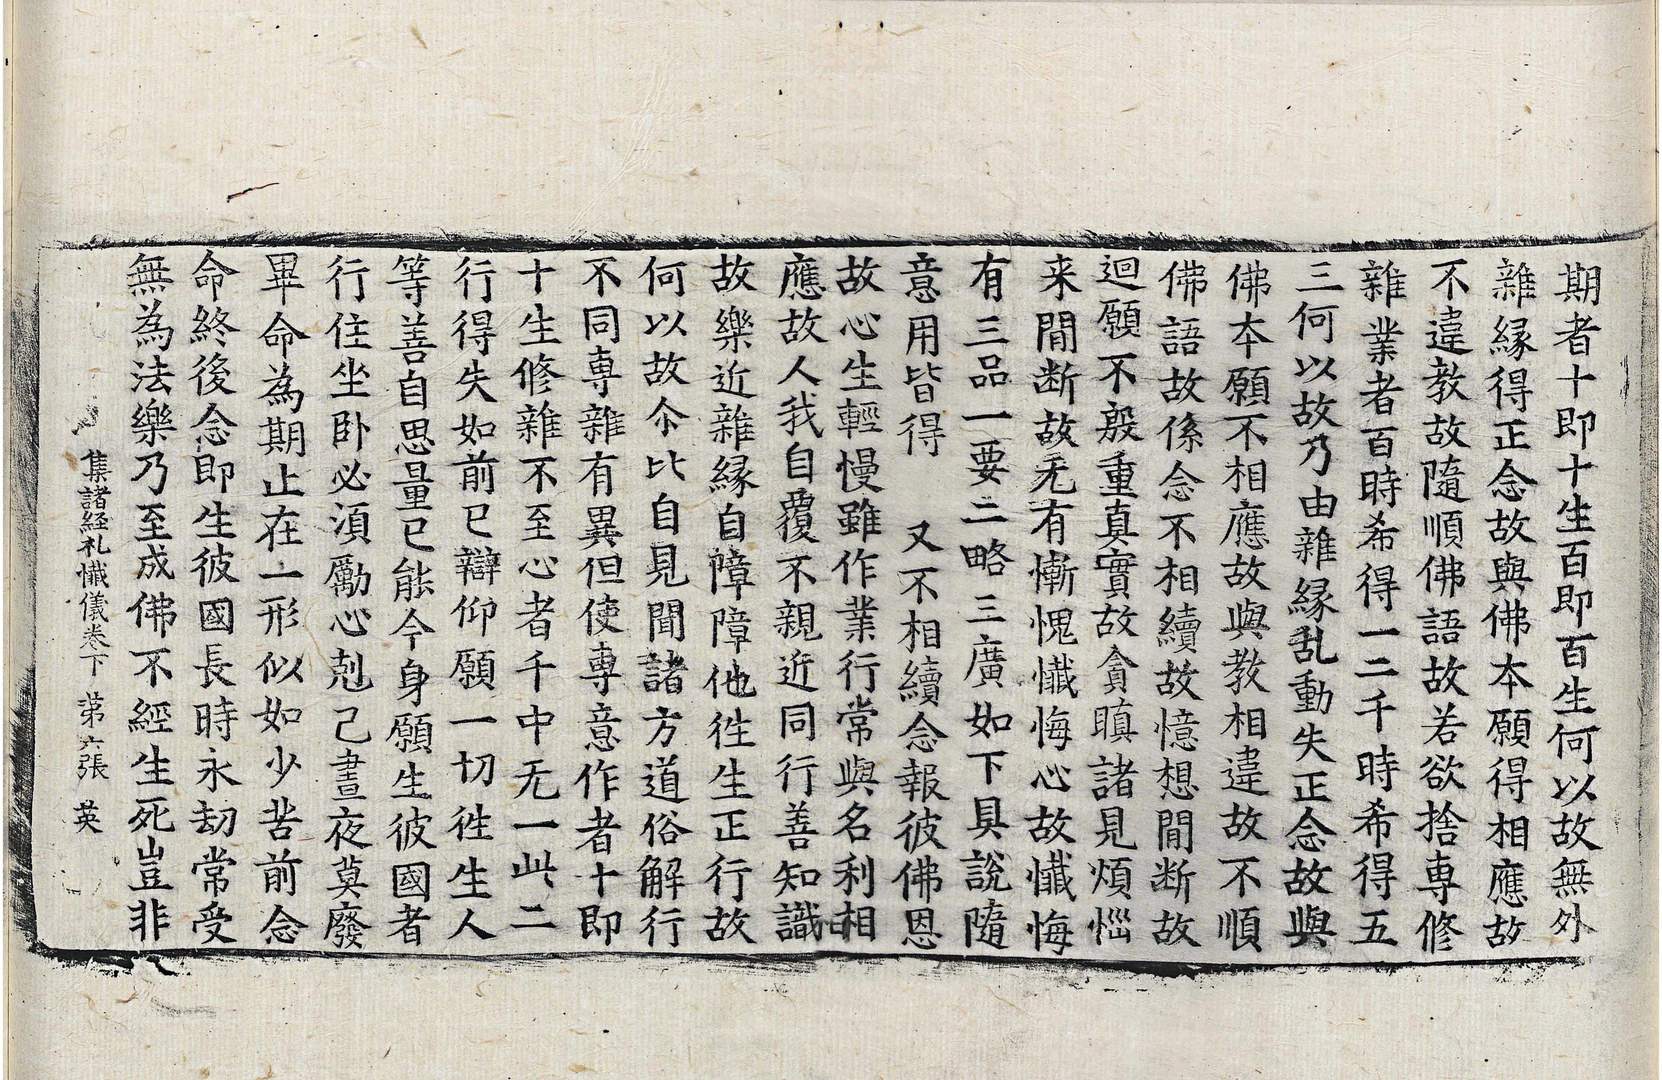 期者十即十生百即百生何以故無外
雜縁得正念故與佛本願得相應故
不違教故隨順佛語故若欲捨專修
雜業者百時希得一二千時希得五
三何以故乃由雜縁乱動失正念故與
佛本願不相應故與教相違故不順
佛語故係念不相續故憶想閒断故
迴願不殷重真實故貪瞋諸見煩惱
来閒断故无有慚愧懺悔心故懺悔
有三品一要二略三廣如下具說隨
意用皆得　又不相續念報彼佛恩
故心生輕慢雖作業行常與名利相
應故人我自覆不親近同行善知識
故樂近雜縁自障障他徃生正行故
何以故余比自見聞諸方道俗解行
不同專雜有異但使專意作者十即
十生修雜不至心者千中无一此二
行得失如前已辯仰願一切徃生人
等善自思量已能今身願生彼國者
行住坐卧必湏勵心剋己晝夜莫廢
畢命為期止在一形似如少苦前念
命終後念即生彼國長時永劫常受
無為法樂乃至成佛不經生死豈非
集諸経礼懺儀卷下　苐六張　英